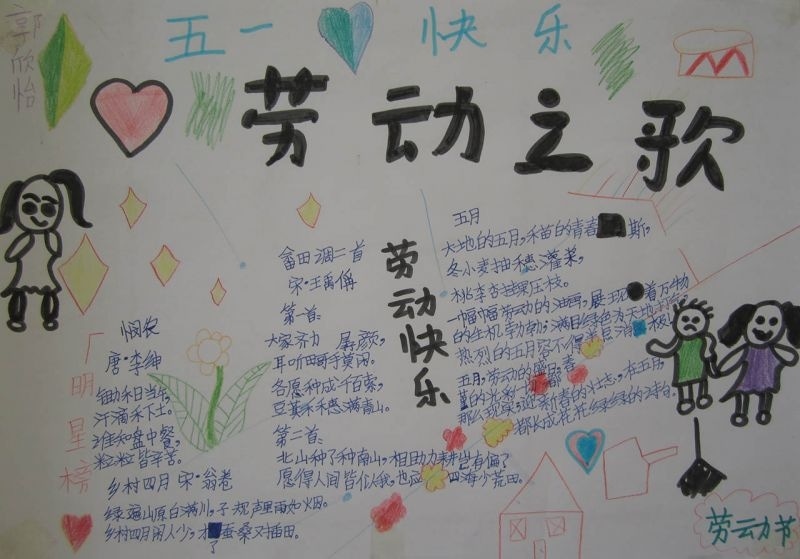 郭欣怡
五一 快乐
劳动之歌
明星榜
悯农
唐·李绅
锄禾日当午,
汗滴禾下土。
谁知盘中餐,
粒粒皆辛苦。
乡村四月 宋·翁卷
绿遍山原白满川,子规声里雨如烟。
乡村四月闲人少,才 蚕桑又插田。
了
畲田调二首
宋·王禹偁
第一首:
大家齐力 孱颜,
耳听田歌手莫闲。
各愿种成千百索,
豆萁禾穗满青山。
第二首:
北山种了种南山,相助力耕岂有偏?
愿得人间皆似我,也应四海少荒田。
劳动快乐
五月
大地的五月,禾苗的青春 斯,
冬小麦抽穗灌浆,
桃李杏挂果压枝。
一幅幅劳动的油画,展现 着万物
的生机勃勃,满目绿色为天地
热烈的五月容不得半点消 极
五月,劳动的盛日,喜
迎新春的壮志,在五月,
都长成花花绿绿的诗句。
劳动节